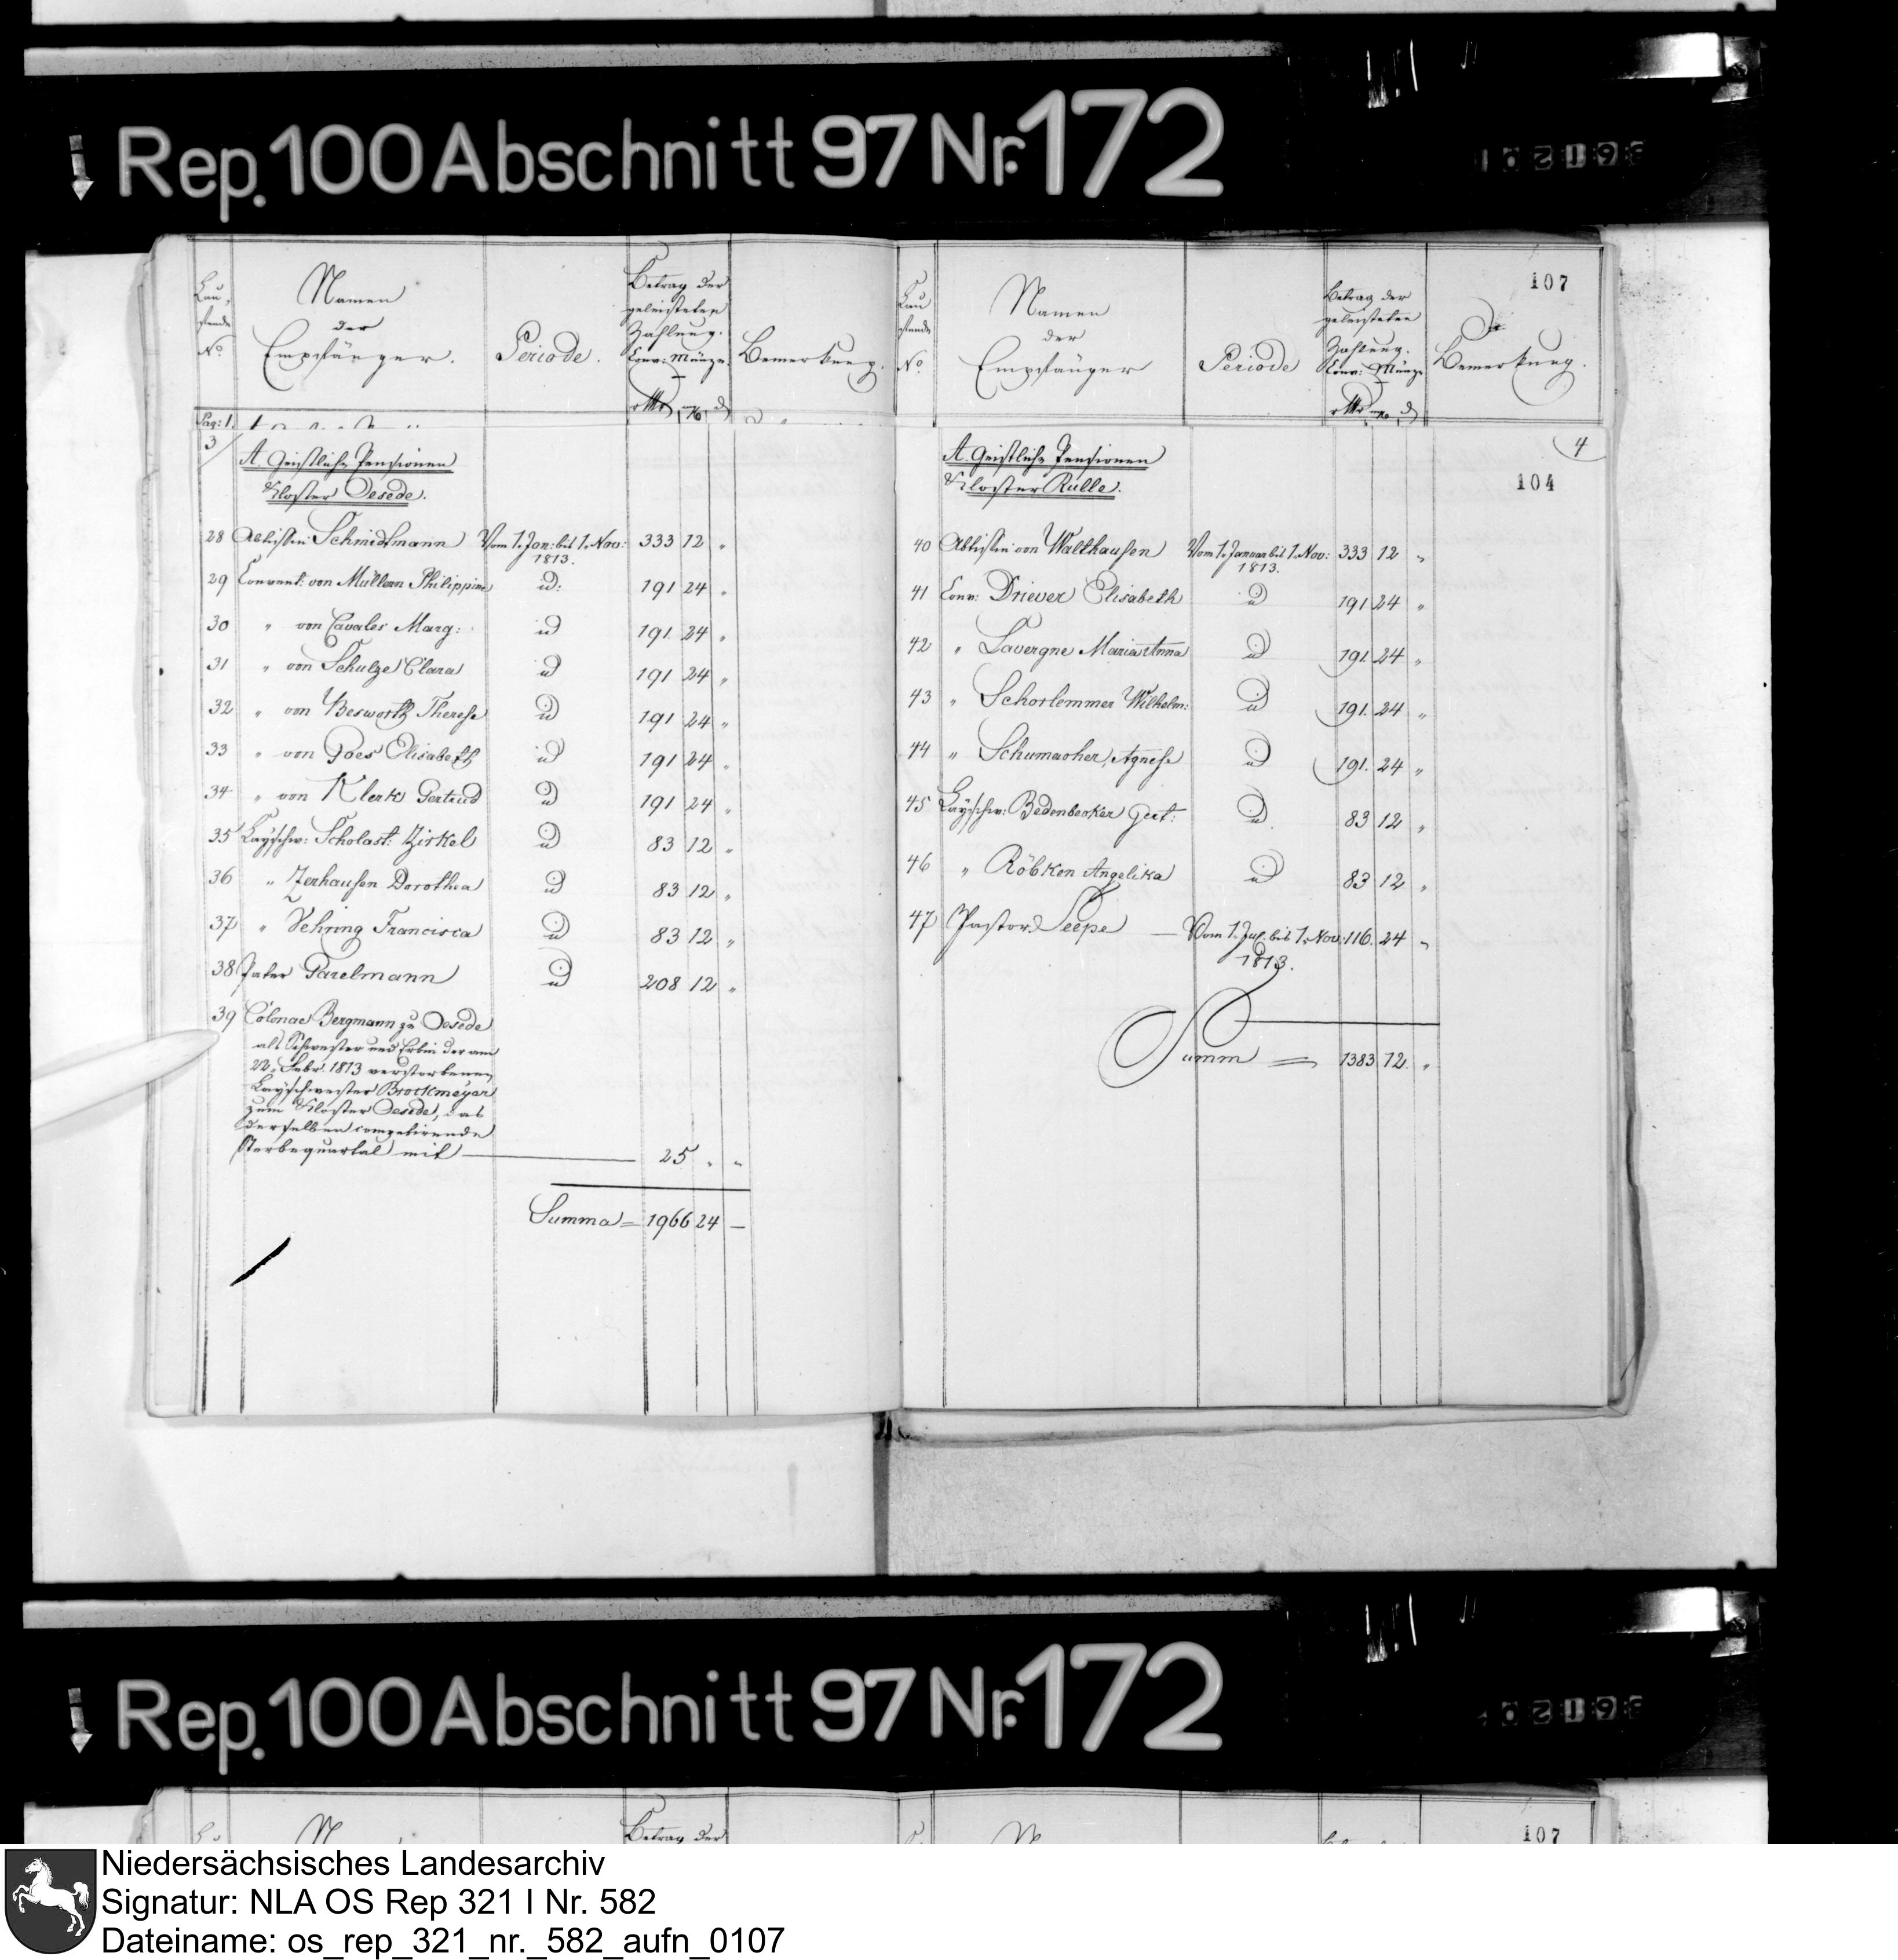 Rep. 100 Abschnitt 97 Nr. 172
Lau-
fende
No.
Namen
der
Empfänger.
Periode.
Betrag der
geleisteten
Zahlung.
Conv: Münze.
Bemerkung.
Pag: 1.
3
A. Geistliche Pensionen
Kloster Oesede.
28 Abtissin Schmidtmann Vom 1. Jan: bis 1. Nov: 333 12 "
1813.
29 Convent: von Müllern Philippine id: 191 24 "
30 " von Cavales Marg: id 191 24 "
31 " von Schulze Clara id 191 24 "
32 " von Besworth Therese id 191 24 "
33 " von Goes Elisabeth id 191 24 "
34 " von Klerk Gertrud id 191 24 "
35 Layschw: Scholast: Zirkel id 83 12 "
36 " Zerhausen Dorothea id 83 12 "
37 " Vehring Francisca id 83 12 "
38 Pater Parelmann id 208 12 "
39 Colonae Bergmann zu Oesede
als Schwester und Erbin der am
22. Febr. 1813 verstorbenen
Layschwester Brockmeyer
zum Kloster Oesede, das
derselben competirende
Sterbequartal mit 25 " "
Summa = 1966 24 –
107
Lau
fende
No.
Namen
der
Empfänger
Periode
Betrag der
geleisteten
Zahlung.
Conv: Münze
Bemerkung.
4
104
A. Geistliche Pensionen
Kloster Rulle.
40 Abtissin von Walthausen Vom 1. Januar bis 1. Nov: 333 12 "
1813.
41 Conv: Driever Elisabeth id 191 24 "
42 " Lavergne Maria Anna id 191. 24 "
43 " Schorlemmer Wilhelm: id 191. 24 "
44 " Schumacher, Agnese id 191. 24 "
45 Layschw: Bedenbecker Gert: id 83 12 "
46 " Röbken Angelika id 83 12 "
47 Pastor Seepe — Vom 1. Jul. bis 1. Nov. 116. 24 "
1813.
Summ = 1383 12. "
Rep. 100 Abschnitt 97 Nr. 172
Betrag der
107
Niedersächsisches Landesarchiv
Signatur: NLA OS Rep 321 I Nr. 582
Dateiname: os_rep_321_nr._582_aufn_0107